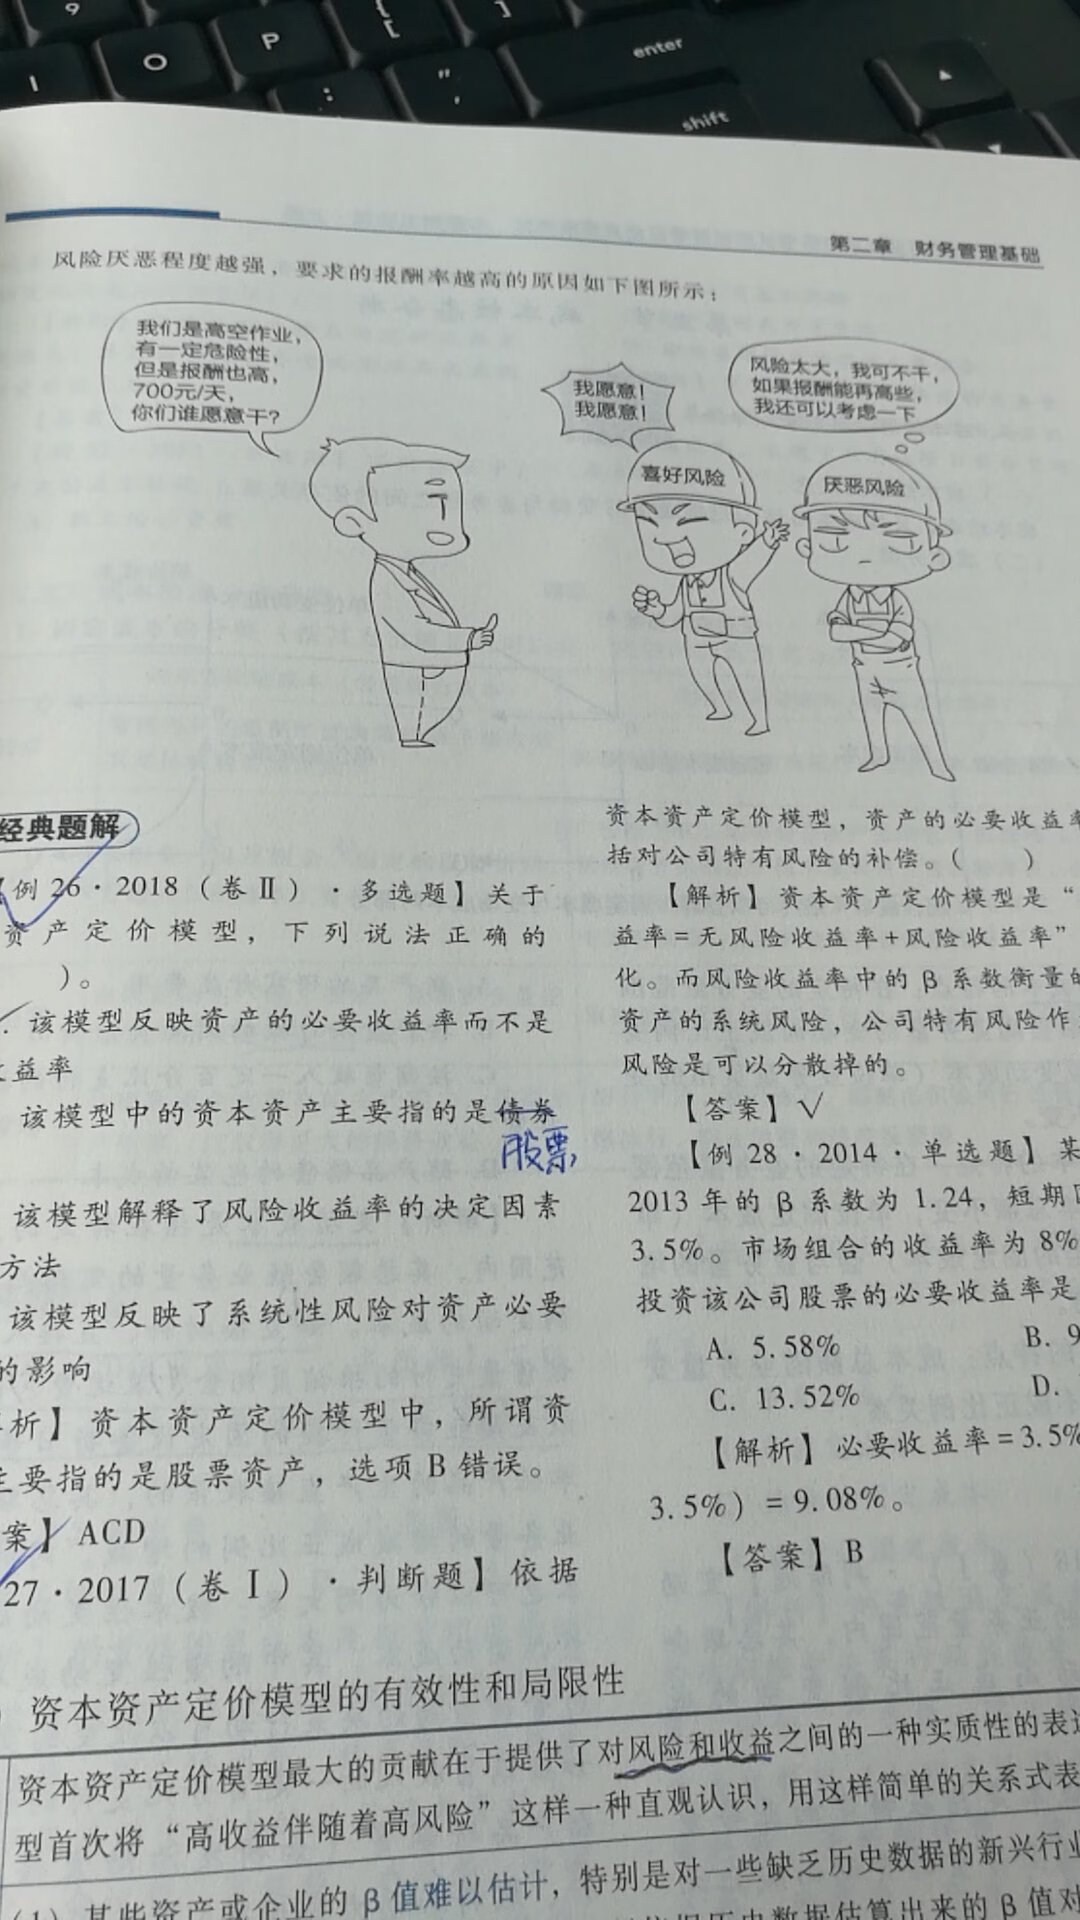 O
P
{
[
]
"
,
:
;
enter
shift
第二章 财务管理基础
风险厌恶程度越强，要求的报酬率越高的原因如下图所示：
我们是高空作业，
有一定危险性，
但是报酬也高，
700元/天，
你们谁愿意干？
我愿意！
我愿意！
风险太大，我可不干，
如果报酬能再高些，
我还可以考虑一下
喜好风险
厌恶风险
经典题解
【例 26·2018（卷Ⅱ）·多选题】关于
资产定价模型，下列说法正确的
）。
. 该模型反映资产的必要收益率而不是
收益率
该模型中的资本资产主要指的是债券
股票
该模型解释了风险收益率的决定因素
方法
该模型反映了系统性风险对资产必要
的影响
解析】资本资产定价模型中，所谓资
主要指的是股票资产，选项 B 错误。
案】ACD
27·2017（卷Ⅰ）·判断题】依据
资本资产定价模型，资产的必要收益率
括对公司特有风险的补偿。（ ）
【解析】资本资产定价模型是“
益率=无风险收益率+风险收益率”
化。而风险收益率中的 β 系数衡量的
资产的系统风险，公司特有风险作
风险是可以分散掉的。
【答案】√
【例 28·2014·单选题】某
2013 年的 β 系数为 1.24，短期国
3.5%。市场组合的收益率为 8%
投资该公司股票的必要收益率是
A. 5.58%
B. 9
C. 13.52%
D.
【解析】必要收益率=3.5%
3.5%）=9.08%。
【答案】B
资本资产定价模型的有效性和局限性
资本资产定价模型最大的贡献在于提供了对风险和收益之间的一种实质性的表述
型首次将“高收益伴随着高风险”这样一种直观认识，用这样简单的关系式表
（1）某些资产或企业的 β 值难以估计，特别是对一些缺乏历史数据的新兴行业
依据历史数据估算出来的 β 值对